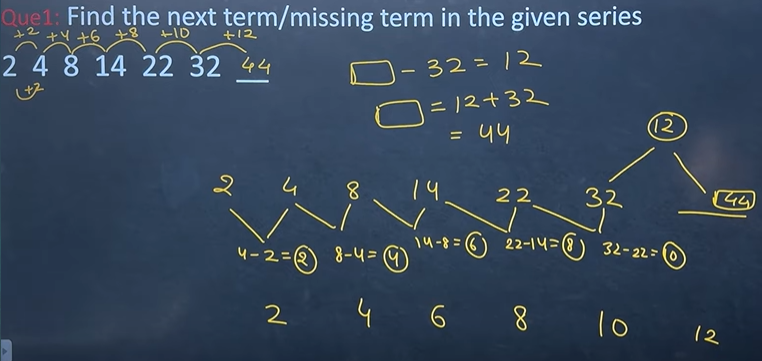 Que1: Find the next term/missing term in the given series
+2 +4 +6 +8 +10 +12
2 4 8 14 22 32 44
+2
□ - 32 = 12
□ = 12+32
= 44
12
2 4 8 14 22 32 44
4-2=2 8-4=4 14-8=6 22-14=8 32-22=10
2 4 6 8 10 12